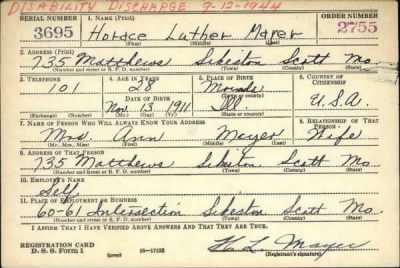 DISABILITY DISCHARGE 9-12-1944
SERIAL NUMBER 1. NAME (Print) ORDER NUMBER
3695 Horace Luther Mayer 2755
(First) (Middle) (Last)
2. ADDRESS (Print)
735 Matthews Sikeston Scott Mo.
(Number and street or R. F. D. number) (Town) (County) (State)
3. TELEPHONE 4. AGE IN YEARS 5. PLACE OF BIRTH 6. COUNTRY OF CITIZENSHIP
101 28 Mounds
DATE OF BIRTH (Town or county)
Nov 13 1911 Ill. U.S.A.
(Exchange) (Number) (Mo.) (Day) (Yr.) (State or country)
7. NAME OF PERSON WHO WILL ALWAYS KNOW YOUR ADDRESS 8. RELATIONSHIP OF THAT PERSON
Mrs. Ann Mayer Wife
(Mr., Mrs., Miss) (First) (Middle) (Last)
9. ADDRESS OF THAT PERSON
735 Matthews Sikeston Scott Mo.
(Number and street or R. F. D. number) (Town) (County) (State)
10. EMPLOYER'S NAME
Self
11. PLACE OF EMPLOYMENT OR BUSINESS
60-61 Intersection Sikeston Scott Mo.
(Number and street or R. F. D. number) (Town) (County) (State)
I AFFIRM THAT I HAVE VERIFIED ABOVE ANSWERS AND THAT THEY ARE TRUE.
REGISTRATION CARD
D. S. S. Form 1 (over) 16-17105 H. L. Mayer
(Registrant's signature)